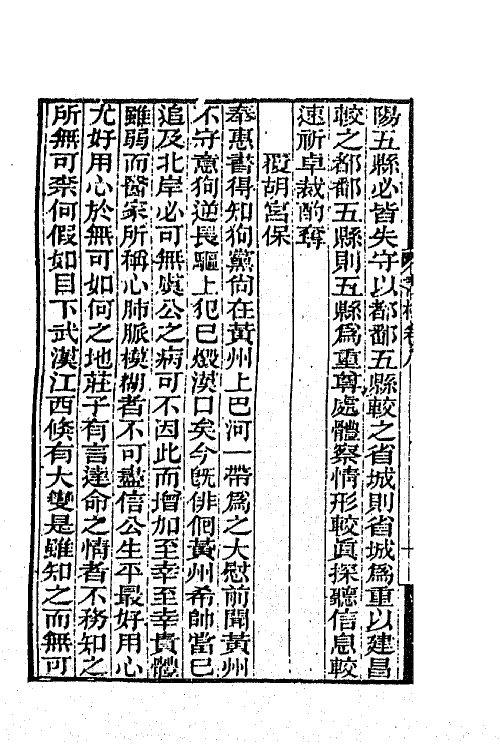 陽五縣必皆失守以都鄱五縣較之省城則省城爲重以建昌
較之都鄱五縣則五縣爲重尊處體察情形較眞探聽信息較
速祈卓裁酌奪
覆胡宮保
奉惠書得知狗黨尙在黃州上巴河一帶爲之大慰前聞黃州
不守意狗逆長驅上犯已燬漢口矣今旣俳侗黃州希帥當已
追及北岸必可無虞公之病可不因此而增加至幸至幸貴體
雖弱而醫家所稱心肺脈模糊者不可盡信公生平最好用心
尤好用心於無可如何之地莊子有言達命之情者不務知之
所無可柰何假如目下武漢江西倏有大變是雖知之而無可